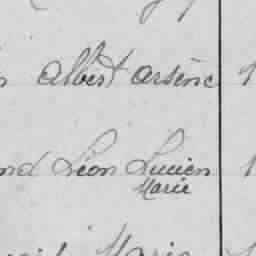 Albert Arsène 1
nd Léon Lucien 1
Marie
Marie